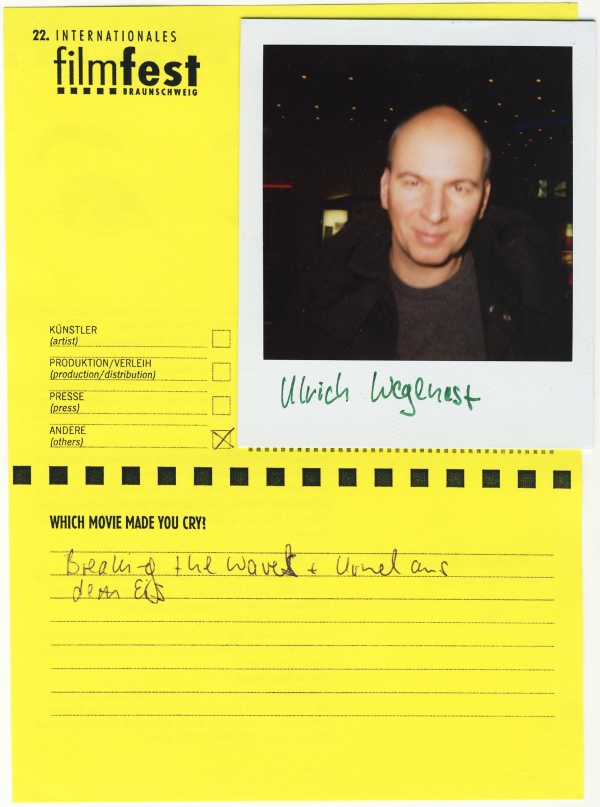 22. INTERNATIONALES
filmfest
BRAUNSCHWEIG
KÜNSTLER
(artist)
PRODUKTION/VERLEIH
(production/distribution)
PRESSE
(press)
ANDERE
(others)
Ulrich Wegenast
WHICH MOVIE MADE YOU CRY?
Breaking the Waves + aus
dem Eis